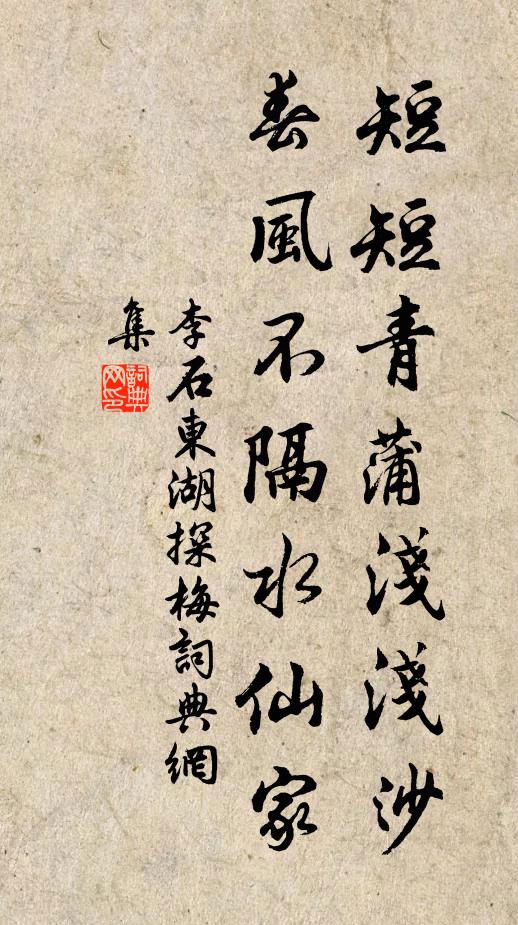 短短青蒲淺淺沙
春風不隔水仙家
李石東湖探梅詞典網
集
詞典
网印